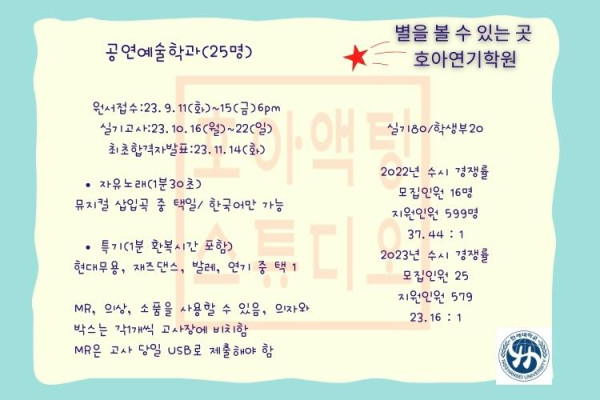 별을 볼 수 있는 곳
호아연기학원
공연예술학과(25명)
원서접수:23.9.11(화)~15(금)6pm
실기고사:23.10.16(월)~22(일)
최초합격자발표:23.11.14(화)
실기80/학생부20
• 자유노래(1분30초)
뮤지컬 삽입곡 중 택일/ 한국어만 가능
• 특기(1분 환복시간 포함)
현대무용, 재즈댄스, 발레, 연기 중 택 1
MR, 의상, 소품을 사용할 수 있음, 의자와
박스는 각1개씩 고사장에 비치함
MR은 고사 당일 USB로 제출해야 함
2022년 수시 경쟁률
모집인원 16명
지원인원 599명
37.44 : 1
2023년 수시 경쟁률
모집인원 25
지원인원 579
23.16 : 1
호아액팅
스튜디오